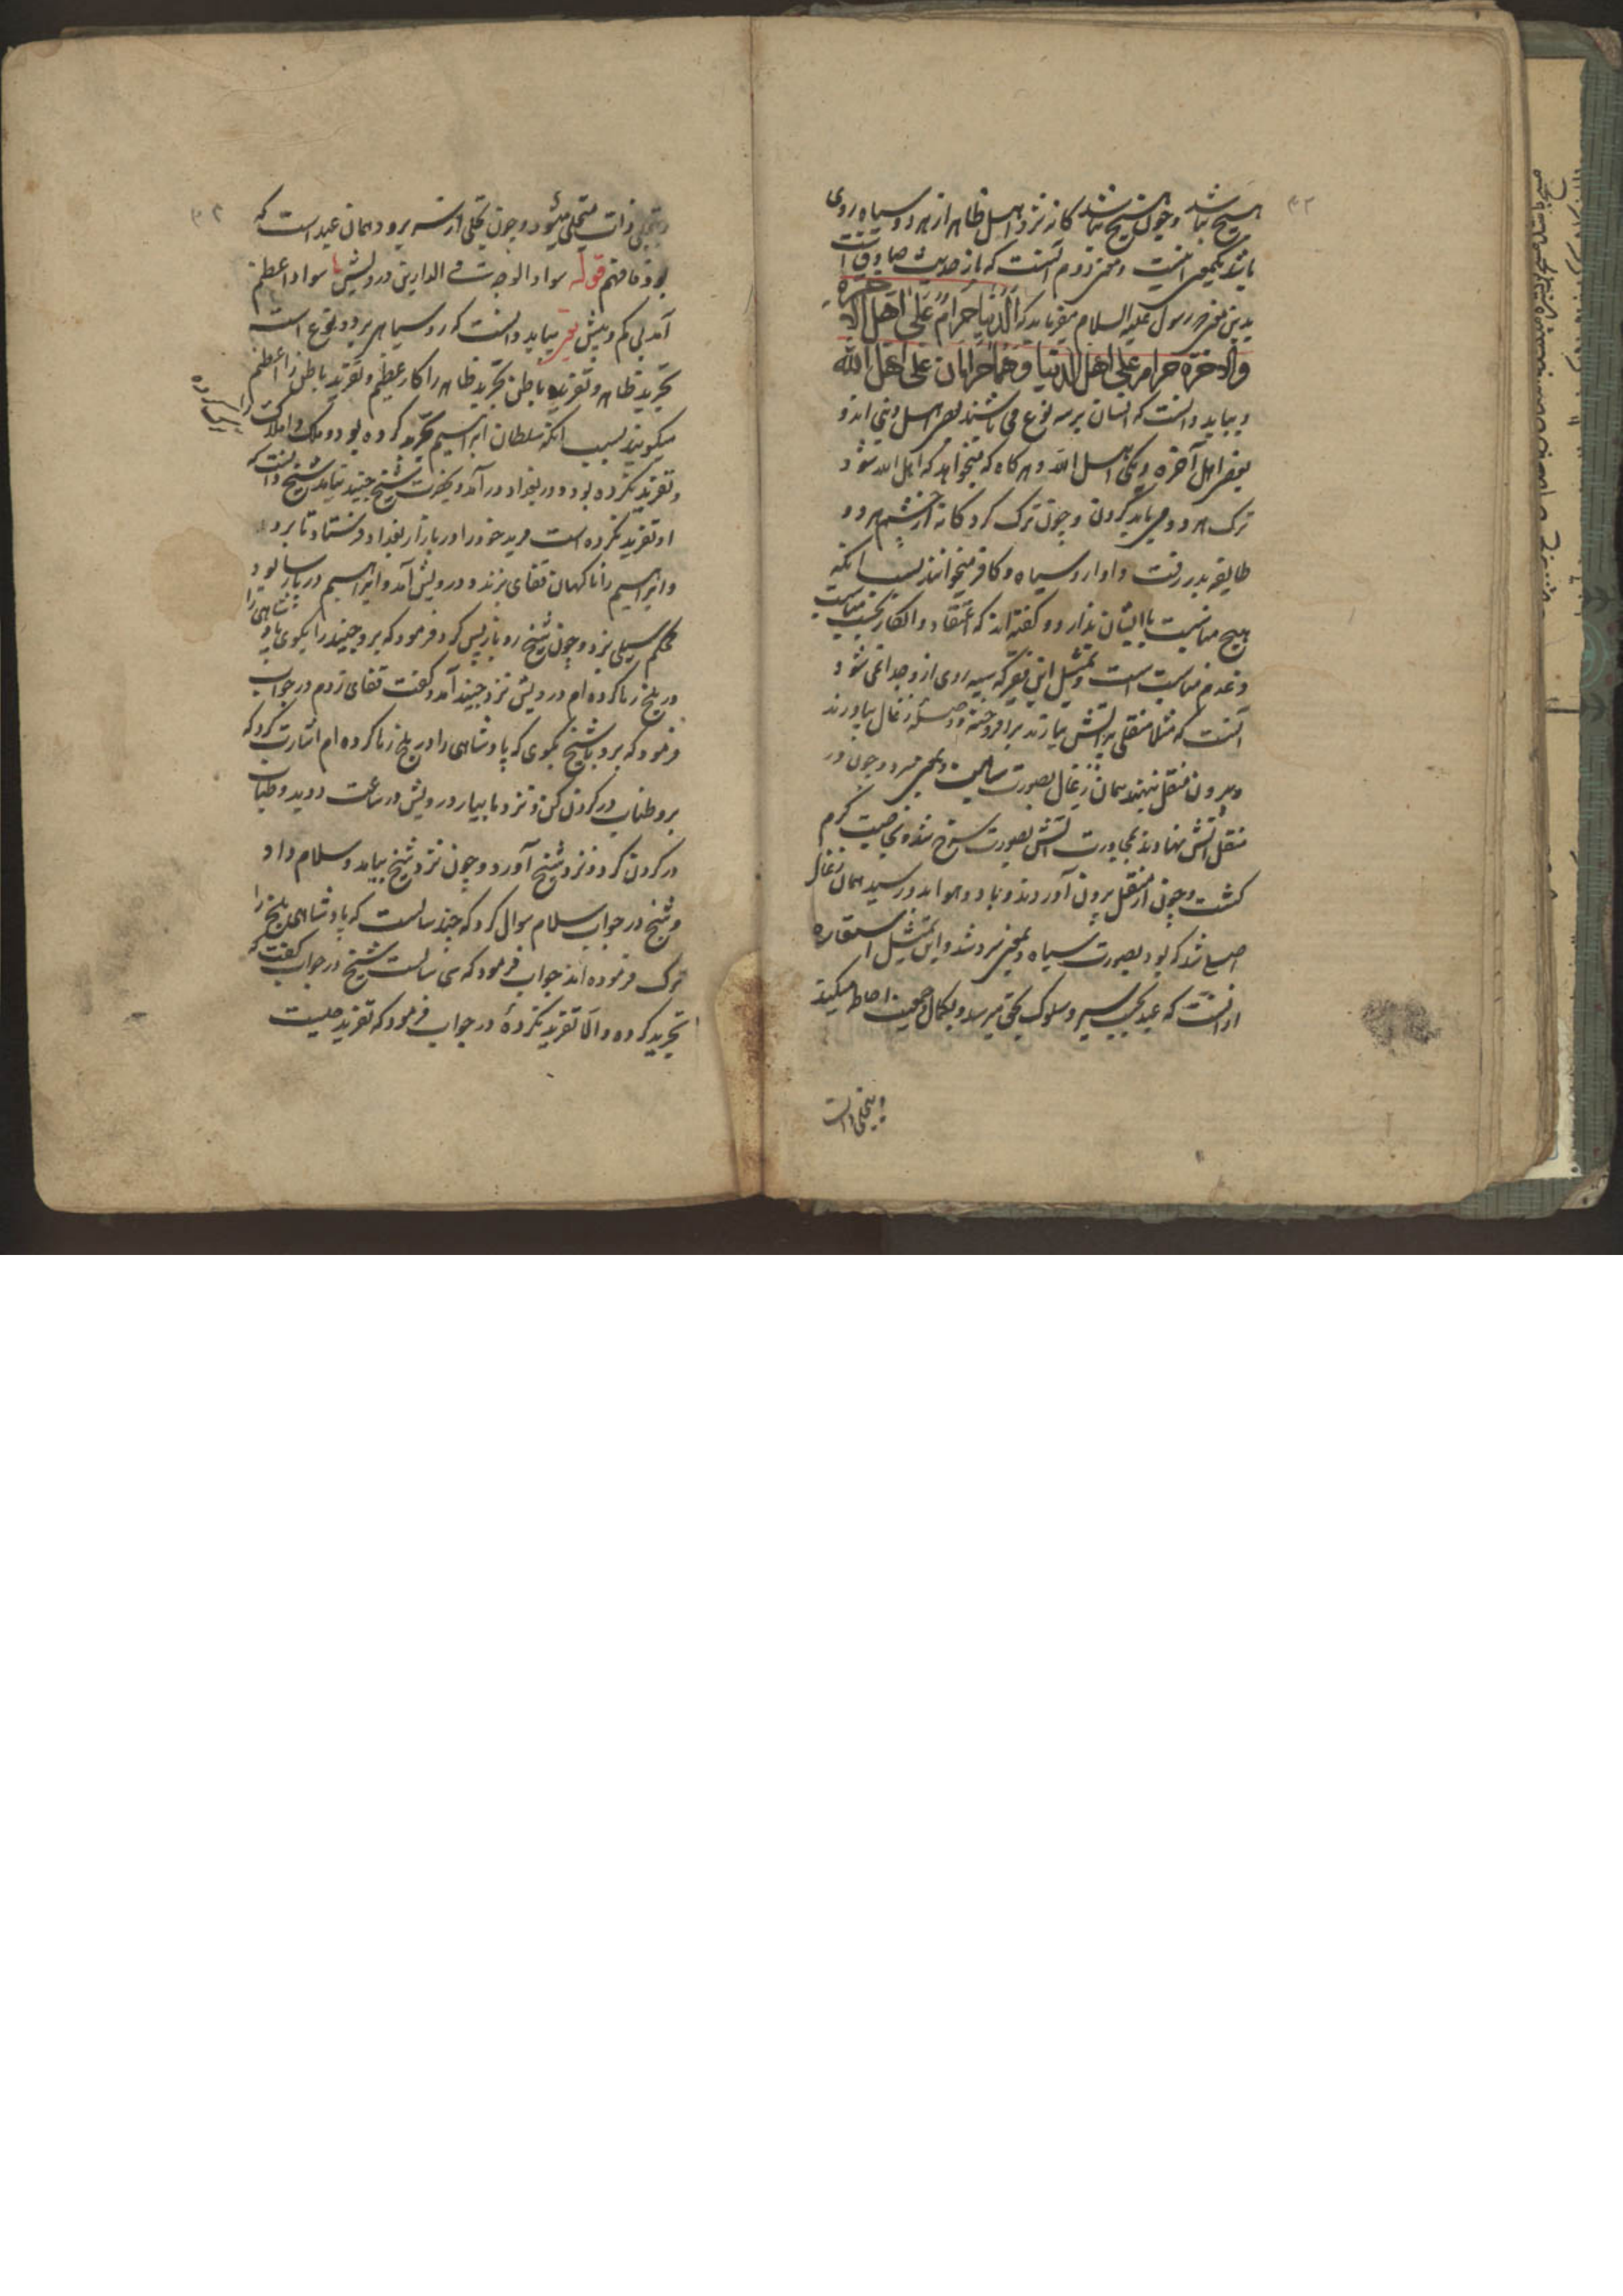 هیچ نباشد و چون هیچ نباشد کانه نزد اهل ظاهر از هر دو سیاه روی
باشد یکمعنی اینست و معنی دوم آنست که باز حدیث صادقست
بدین معنی رسول علیه السلام میفرماید که الدنیا حرام علی اهل الآخرة
والآخرة حرام علی اهل الدنیا وهما حرامان علی اهل الله
و بباید دانست که انسان بر سه نوع می باشند بعضی اهل دنی اند و
بعضی اهل آخره و یکی اهل الله و هرگاه که میخواهد که اهل الله شود
ترک هر دو می باید کردن و چون ترک کرد کانه از چشم هر دو
طایفه بدر رفت و او را روسیاه و کافر میخوانند بسبب آنکه
هیچ مناسبت با ایشان ندارد و گفته اند که اعتقاد و انکار بحسب مناسبت
و عدم مناسبت است و تمثیل این فقیر که سیه روی از وجدا نمی شود
آنست که مثلا منقلی پر آتش بیارند برافروخته و زغال بیاورند
و بیرون منقل بنهند همان زغال بصورت سیاهیست و بمعنی سرد و چون در
منقل آتش نهادند بمجاورت آتش بصورت سرخ شده و بخاصیت گرم
گشت و چون از منقل برون آوردند و باد و هوا بدو رسید همان زغال
اصلی شد که بود بصورت سیاه و بمعنی سرد شد و این تمثیل استعاره
از آنست که عبد بحسب سیر و سلوک بحق میرسد و بکمال و جمعیت احاطه میکند
و بتجلی ذات
و بتجلی ذات متجلی میشود و چون تجلی از سر برود همان عبد است که
بود فافهم قوله سواد الوجه فی الدارین درویش با سواد اعظم
آمد بی کم و بیش یعنی بباید دانست که روسیاهی بر دو نوع است
تجرید ظاهر و تفرید باطن تجرید ظاهر را کار عظیم و تفرید باطن را اعظم
میگویند بسبب آنکه سلطان ابراهیم تجرید کرده بود و ملک و املاک را
و تفرید نکرده بود و در بغداد درآمد و بحضرت شیخ جنید بیامد شیخ دانست که
او تفرید نکرده است مرید خود را در بازار بغداد فرستاد تا برود
و ابراهیم را ناگهان قفای بزند و درویش آمد و ابراهیم در بازار بود
محکم سیلی بزد و چون شیخ رو باز پس کرد فرمود که برو جنید را بگوی پادشاهی را
در بلخ رها کرده ام درویش نزد جنید آمد و گفت قفای زدم در جواب
فرمود که برو با شیخ بگوی که پادشاهی را در بلخ رها کرده ام اشارت کرد که
برو طناب در گردن کن و نزد ما بیار درویش در ساعت دوید و طناب
در گردن کرد و نزد شیخ آورد و چون نزد شیخ بیامد و سلام داد
و شیخ در جواب سلام سوال کرد که چند سالست که پادشاهی بلخ را
ترک فرموده اند جواب فرمود که سی سالست شیخ در جواب گفت که
تجرید کرده و الا تفرید نکردهٔ در جواب فرمود که تفرید چیست